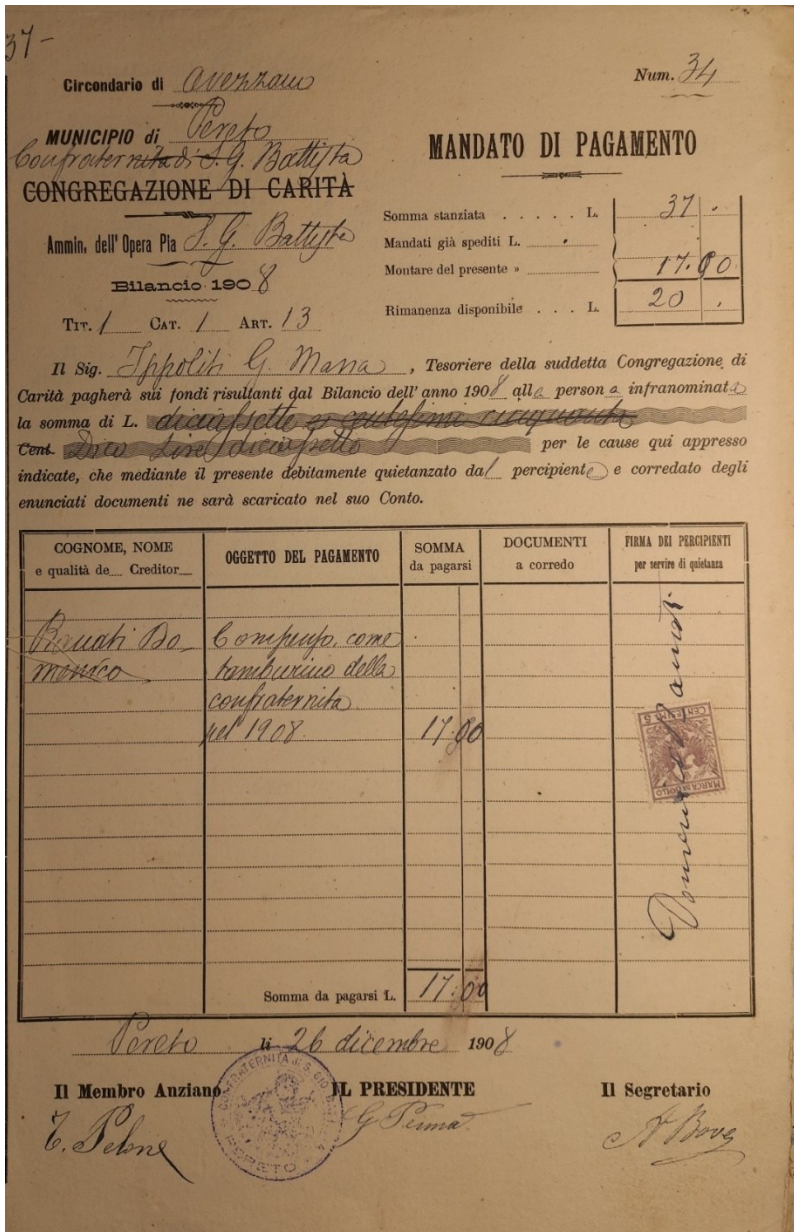 37-
Circondario di Avezzano
Num. 34
MUNICIPIO di Pereto
Confraternita di S. G. Battista
CONGREGAZIONE DI CARITÀ
MANDATO DI PAGAMENTO
Ammin. dell' Opera Pia S. G. Battista
Bilancio 1908
TIT. 1 CAT. 1 ART. 13
Somma stanziata . . . . . L. 37 .
Mandati già spediti L.
Montare del presente » 17.00
Rimanenza disponibile . . . L. 20 .
Il Sig. Ippoliti G. Maria, Tesoriere della suddetta Congregazione di
Carità pagherà sui fondi risultanti dal Bilancio dell' anno 1908 alla persona infranominata
la somma di L. diciassette e centesimi cinquanta
Cent. Dico lire diciassette per le cause qui appresso
indicate, che mediante il presente debitamente quietanzato dal percipiente e corredato degli
enunciati documenti ne sarà scaricato nel suo Conto.
COGNOME, NOME
e qualità de Creditor
OGGETTO DEL PAGAMENTO
SOMMA
da pagarsi
DOCUMENTI
a corredo
FIRMA DEI PERCIPIENTI
per servire di quietanza
Do-
menico
Compenso come
tamburino della
confraternita
pel 1908. 17.00
Domenico
CENTESIMI 5
MARCA DA BOLLO
Somma da pagarsi L. 17.00
Pereto li 26 dicembre 1908
Il Membro Anziano
IL PRESIDENTE
Il Segretario
CONFRATERNITA DI S. GIO
PERETO
G Penna